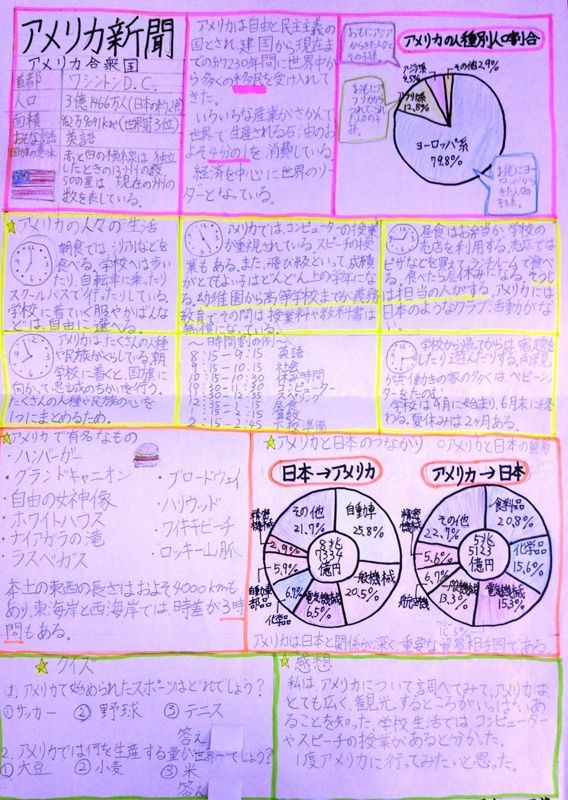 アメリカ新聞
アメリカ合衆国
首都 ワシントンD.C.
人口 3億1466万人(日本の約2倍)
面積
おもな言語 英語
国旗の意味 赤と白の横線は、独立
したときの13州の数
50の星は、現在の州の
数を表している。
アメリカは自由と民主主義の
国とされ、建国から現在ま
での約230年間に世界中か
ら多くの移民を受け入れて
きた。
いろいろな産業がさかんで
世界で生産される石油のお
よそ4分の1を消費している。
経済を中心に世界のリー
ダーとなっている。
アメリカの人種別人口割合
おもにアジア
からきた人と
その子孫。
アジア系
4.5%
その他2.9%
アフリカ系
12.8%
おもにアフ
リカからつ
れてこられ
た人の子孫。
ヨーロッパ系
79.8%
おもにヨー
ロッパから
きた人の
子孫。
★アメリカの人々の生活
朝食では、シリアルなどを
食べる。学校へは歩い
たり、自転車に乗ったり
スクールバスで行ったりしている。
学校に着ていく服やかばんな
どは、自由に選べる。
アメリカでは、コンピューターの授業
が重視されている。スピーチの授
業もある。また、飛び級といって成績
がとてもよい子はどんどん上の学年にな
る。幼稚園から高等学校までが義務
教育で、その間は授業料や教科書は
無償になっている。
昼食はお弁当か学校の
売店を利用する。売店では
ピザなどを買ってランチルームで食べ
る。食べたら昼休みになる。そうじ
は担当の人がする。アメリカには
日本のようなクラブ活動がな
い。
アメリカはたくさんの人種
や民族がくらしている。朝
学校に着くと、国旗に
向かって、忠誠のちかいを行う。
たくさんの人種や民族の心を
1つにまとめるため。
〜時間割の例〜
8:15-9:15 英語
9:15-10:15 社会
10:15-10:30 休み時間
10:30-11:30 コンピューター
スペリング
昼食
算数
2:15-2:45 下校準備
学校から帰ってからは宿題を
したり遊んだりする。両親
が共働きの家の多くは、ベビーシッ
ターをたのむ。
学校は9月に始まり、6月末に終
わる。夏休みは2ヶ月ある。
★アメリカで有名なもの
・ハンバーガー
・グランドキャニオン
・自由の女神像
・ホワイトハウス
・ナイアガラの滝
・ラスベガス
・ブロードウェイ
・ハリウッド
・ワイキキビーチ
・ロッキー山脈
本土の東西の長さはおよそ4000kmも
あり、東海岸と西海岸では時差が3時
間もある。
★アメリカと日本のつながり ○アメリカと日本の貿易
日本→アメリカ
自動車
25.8%
一般機械
20.5%
電気機械
6.5%
化学品
6.7%
自動車
部品
5.9%
精密
機械
2.9%
その他
21.7%
8兆
7334
億円
アメリカ→日本
食料品
20.8%
化学品
15.6%
電気機械
15.3%
一般機械
13.3%
航空機
6.7%
精密
機械
5.6%
その他
22.7%
5兆
5123
億円
アメリカは日本と関係が深く重要な貿易相手国である。
★クイズ
1、アメリカで始められたスポーツはどれでしょう?
①サッカー ②野球 ③テニス
答え
2、アメリカでは何を生産する量が世界一でしょう?
①大豆 ②小麦 ③米
答え
★感想
私は、アメリカについて調べてみて、アメリカは、
とても広く、観光するところがいっぱいあ
ることを知った。学校生活では、コンピューター
やスピーチの授業があると分かった。
1度アメリカに行ってみたいと思った。